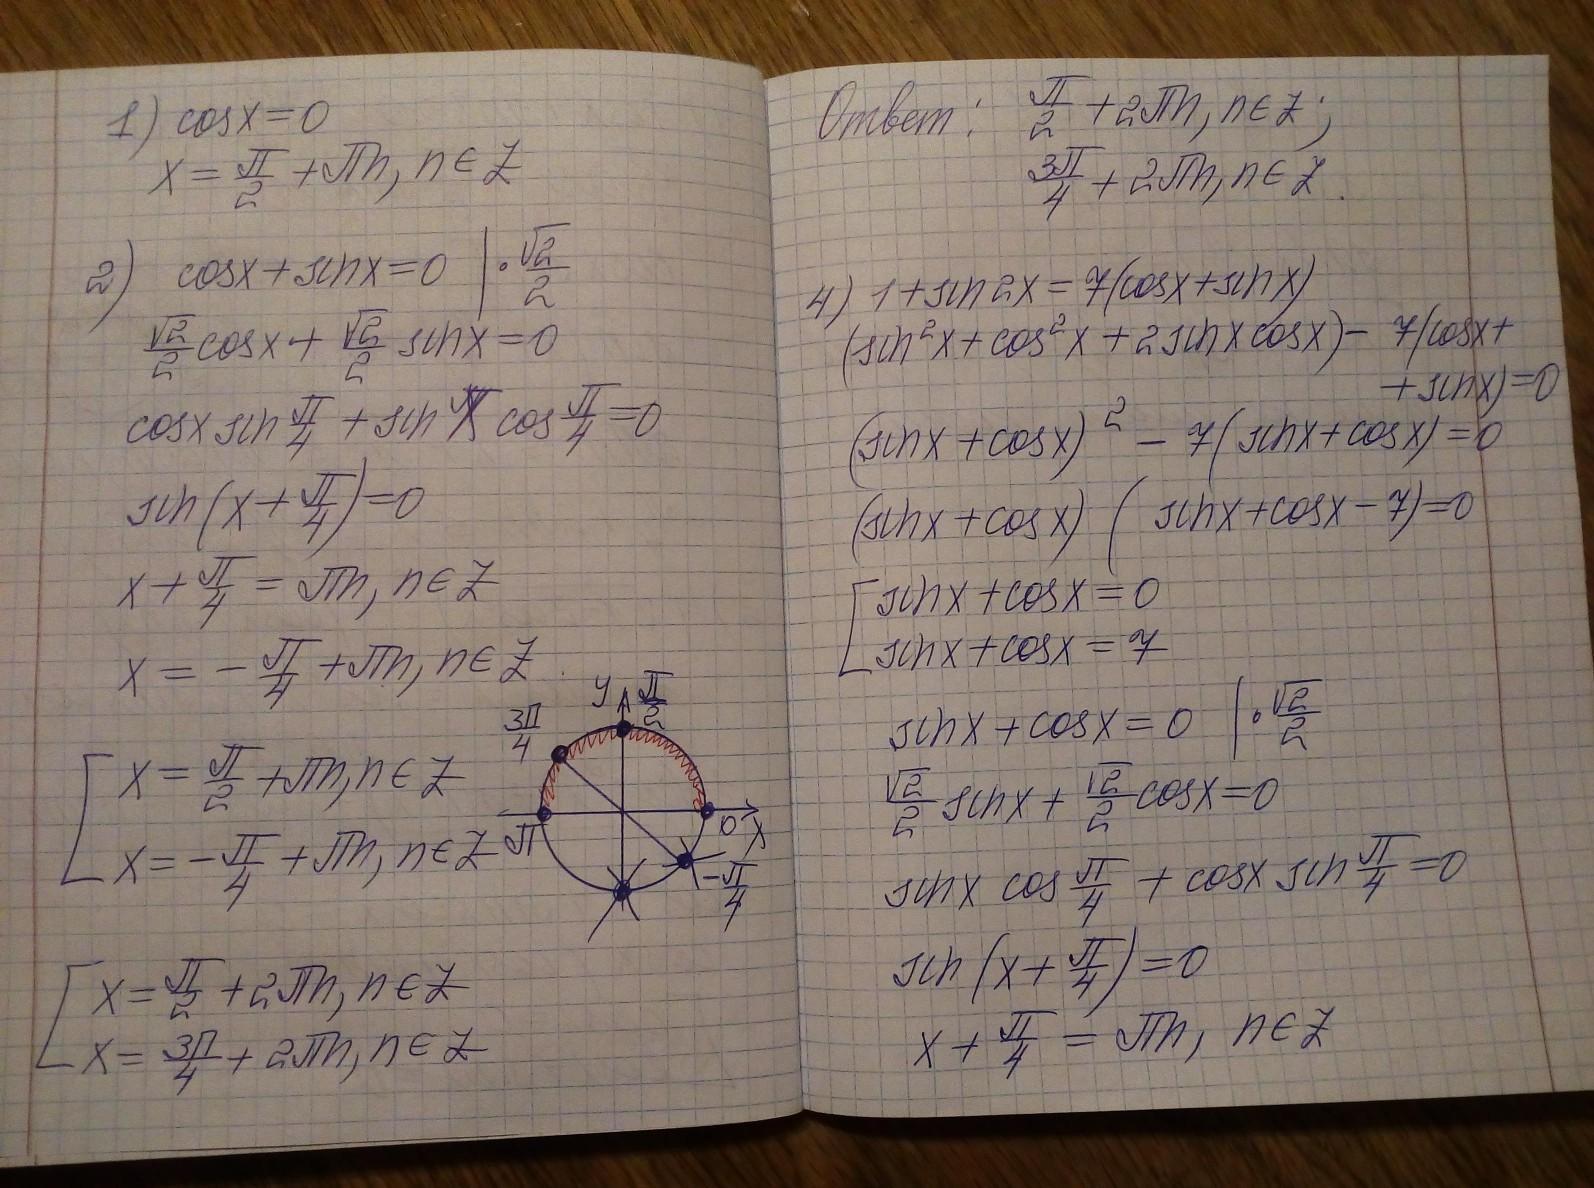 1) cosx=0
x = π/2 + πn, n∈Z
2) cosx + sinx = 0 | · √2/2
√2/2 cosx + √2/2 sinx = 0
cosx sin π/4 + sin x cos π/4 = 0
sin(x + π/4) = 0
x + π/4 = πn, n∈Z
x = - π/4 + πn, n∈Z
[ x = π/2 + πn, n∈Z
x = - π/4 + πn, n∈Z
y π/2
3π/4
π 0 x
- π/4
[ x = π/2 + 2πn, n∈Z
x = 3π/4 + 2πn, n∈Z
Ответ: π/2 + 2πn, n∈Z;
3π/4 + 2πn, n∈Z.
4) 1 + sin2x = 7(cosx + sinx)
(sin²x + cos²x + 2sinx cosx) - 7(cosx +
+ sinx) = 0
(sinx + cosx)² - 7(sinx + cosx) = 0
(sinx + cosx) (sinx + cosx - 7) = 0
[ sinx + cosx = 0
sinx + cosx = 7
sinx + cosx = 0 | · √2/2
√2/2 sinx + √2/2 cosx = 0
sinx cos π/4 + cosx sin π/4 = 0
sin(x + π/4) = 0
x + π/4 = πn, n∈Z